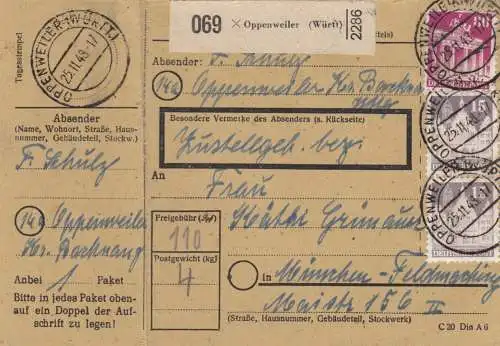 069 × Oppenweiler (Württ) 2286
Tagesstempel
OPPENWEILER (WÜRTT)
25.11.48.-17
Absender:
F. Schulz
(14a) Oppenweiler Kr. Backnang
Absender
(Name, Wohnort, Straße, Haus-
nummer, Gebäudeteil, Stockw.)
F. Schulz
(14a) Oppenweiler
Kr. Backnang
Anbei 1 Paket
Bitte in jedes Paket oben-
auf ein Doppel der Auf-
schrift zu legen!
Besondere Vermerke des Absenders (s. Rückseite)
Zustellgeb. bez.
An
Frau
Käthi
Freigebühr
110
Postgewicht (kg)
4
in München - Feldmoching
Maistr 156 II
(Straße, Hausnummer, Gebäudeteil, Stockwerk)
C 20 Din A 6
80
15
OPPENWEILER (WÜRTT)
25.11.48.-17